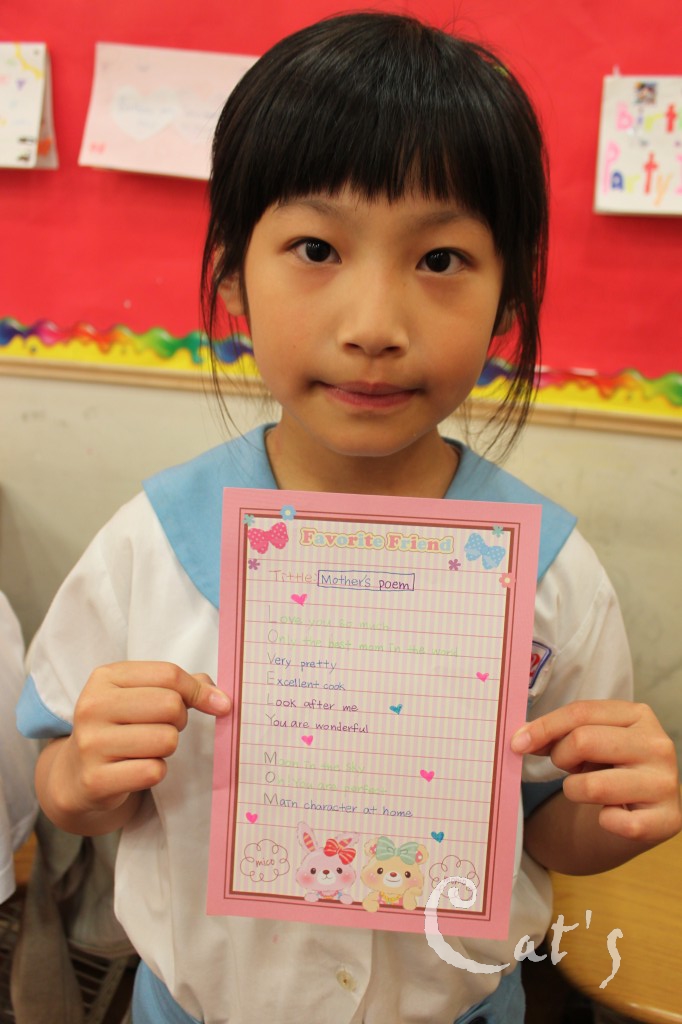 Birth
Party
Favorite Friend
Tittle: Mother's poem
Love you so much
Only the best mom in the world
Very pretty
Excellent cook
Look after me
You are wonderful
Moon in our sky
Oh! You are
Main character at home
mico
Cat's